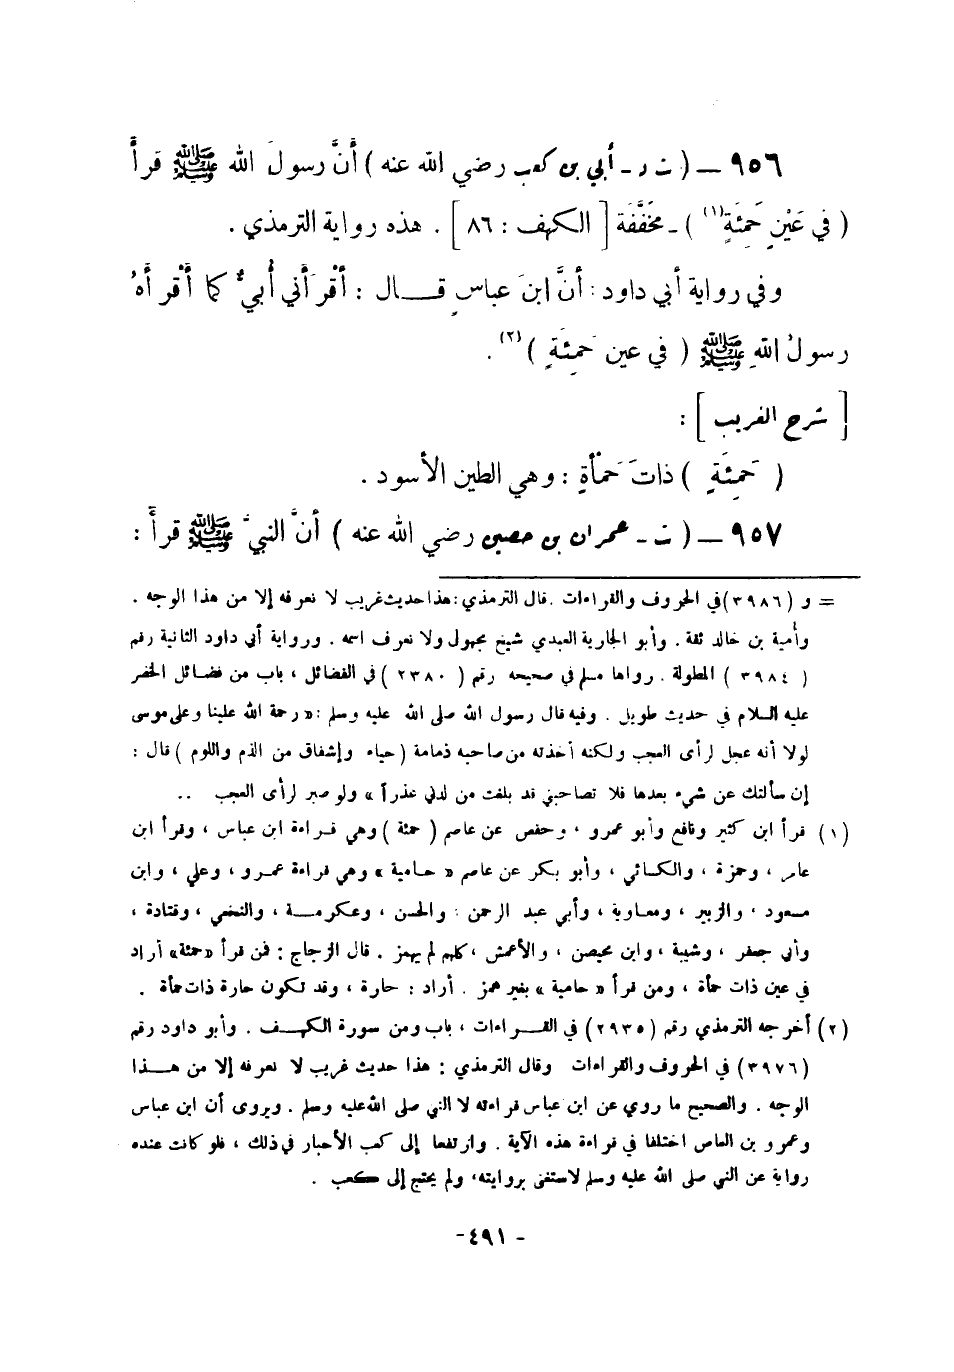 ٩٥٦ ــ ( ت د ـ أبي بن كعب رضي الله عنه ) أنَّ رسولَ الله ﷺ قرأَ
( في عَيْنٍ حَمِئَةٍ(١) ) ـ مخَفَّفَة [ الكهف : ٨٦ ] . هذه رواية الترمذي .
وفي رواية أبي داود : أنَّ ابنَ عباسٍ قـــال : أقْرَأَني أُبيٌّ كما أقْرأهُ
رسولُ اللهِ ﷺ ( في عين حَمِئَةٍ )(٢) .
[ شرح الغريب ] :
( حَمِئَةٍ ) ذاتَ حَمْأةٍ : وهي الطين الأسود .
٩٥٧ ــ ( ت ـ عمران بن حصين رضي الله عنه ) أنَّ النبيَّ ﷺ قرأَ :
= و (٣٩٨٦) في الحروف والقراءات . قال الترمذي : هذا حديث غريب لا نعرفه إلا من هذا الوجه .
وأمية بن خالد ثقة . وأبو الجارية العبدي شيخ مجهول ولا نعرف اسمه . ورواية أبي داود الثانية رقم
( ٣٩٨٤ ) المطولة . رواها مسلم في صحيحه رقم ( ٢٣٨٠ ) في الفضائل ، باب من فضائل الخضر
عليه السلام في حديث طويل . وفيه قال رسول الله صلى الله عليه وسلم : « رحمة الله علينا وعلى موسى
لولا أنه عجل لرأى العجب ولكنه أخذته من صاحبه ذمامة ( حياء وإشفاق من الذم واللوم ) قال :
إن سألتك عن شيء بعدها فلا تصاحبني قد بلغت من لدني عذراً » ولو صبر لرأى العجب ..
(١) قرأ ابن كثير ونافع وأبو عمرو ، وحفص عن عاصم ( حمئة ) وهي قراءة ابن عباس ، وقرأ ابن
عامر ، وحمزة ، والكسائي ، وأبو بكر عن عاصم « حامية » وهي قراءة عمرو ، وعلي ، وابن
مسعود ، والزبير ، ومعاوية ، وأبي عبد الرحمن ، والحسن ، وعكرمة ، والنخعي ، وقتادة ،
وأبي جعفر ، وشيبة ، وابن محيصن ، والأعمش ، كلهم لم يهمز . قال الزجاج : فمن قرأ « حمئة » أراد
في عين ذات حمأة ، ومن قرأ « حامية » بغير همز . أراد : حارة ، وقد تكون حارة ذات حمأة .
(٢) أخرجه الترمذي رقم (٢٩٣٥) في القراءات ، باب ومن سورة الكهف . وأبو داود رقم
(٣٩٧٦) في الحروف والقراءات وقال الترمذي : هذا حديث غريب لا نعرفه إلا من هــذا
الوجه . والصحيح ما روي عن ابن عباس قراءته لا النبي صلى الله عليه وسلم . ويروى أن ابن عباس
وعمرو بن العاص اختلفا في قراءة هذه الآية . وارتفعا إلى كعب الأحبار في ذلك ، فلو كانت عنده
رواية عن النبي صلى الله عليه وسلم لاستغنى بروايته ، ولم يحتج إلى كعب .
- ٤٩١ -